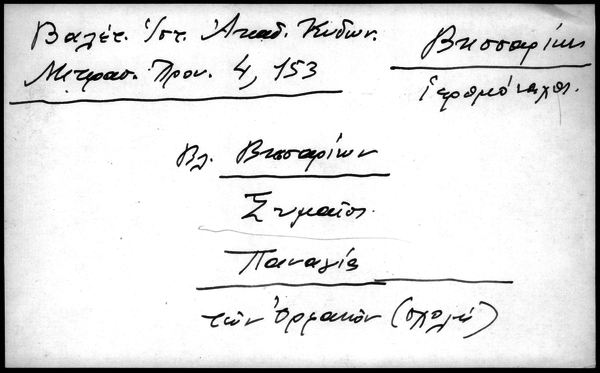 Βαλέτ. Ἱστ. Ἀκαδ. Κυδων.
Μητρασ. Χρον. 4, 153
Βησσαρίων
Ἱερομόναχος.
Βλ. Βησσαρίων
Συμαῖος.
Παναγία
τῶν Ὀρφανῶν (σχολή)